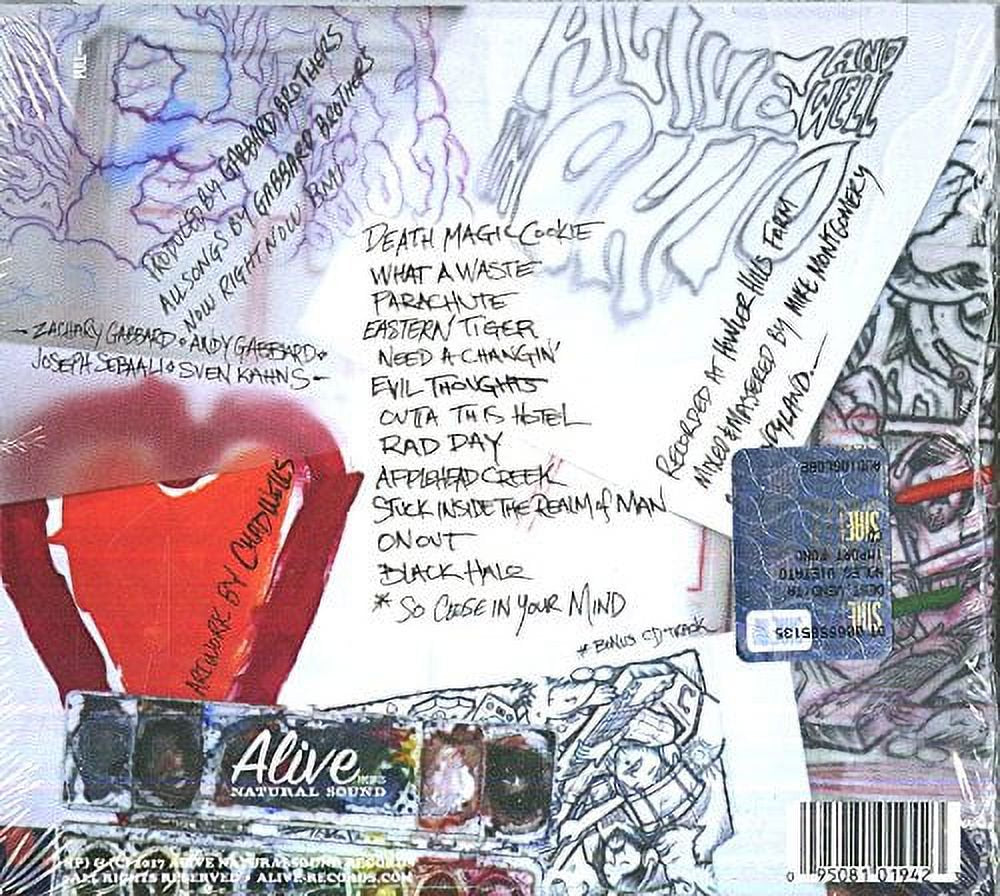 PRODUCED BY GABBARD BROTHERS
ALL SONGS BY GABBARD BROTHERS
NOW RIGHT NOW BMI
- ZACHARY GABBARD • ANDY GABBARD •
JOSEPH SEBAALI • SVEN KAHNS -
ALIVE AND WELL
OHIO
DEATH MAGIC COOKIE
WHAT A WASTE
PARACHUTE
EASTERN TIGER
NEED A CHANGIN'
EVIL THOUGHTS
OUTTA THIS HOTEL
RAD DAY
APPLEHEAD CREEK
STUCK INSIDE THE REALM of MAN
ON OUT
BLACK HALO
* SO CLOSE IN YOUR MIND
* BONUS CD TRACK
RECORDED AT HOWLER HILLS FARM
MIXED & MASTERED BY MIKE MONTGOMERY
ARTWORK BY CHAD WELLS
SIAE
DEST. VENDITA
NOLEG. VIETATO
IMPORT FONO
SIAE
Alive
NATURAL SOUND
(P) & (C) 2017 ALIVE NATURALSOUND RECORDS
ALL RIGHTS RESERVED • ALIVE-RECORDS.COM
0 95081 01942